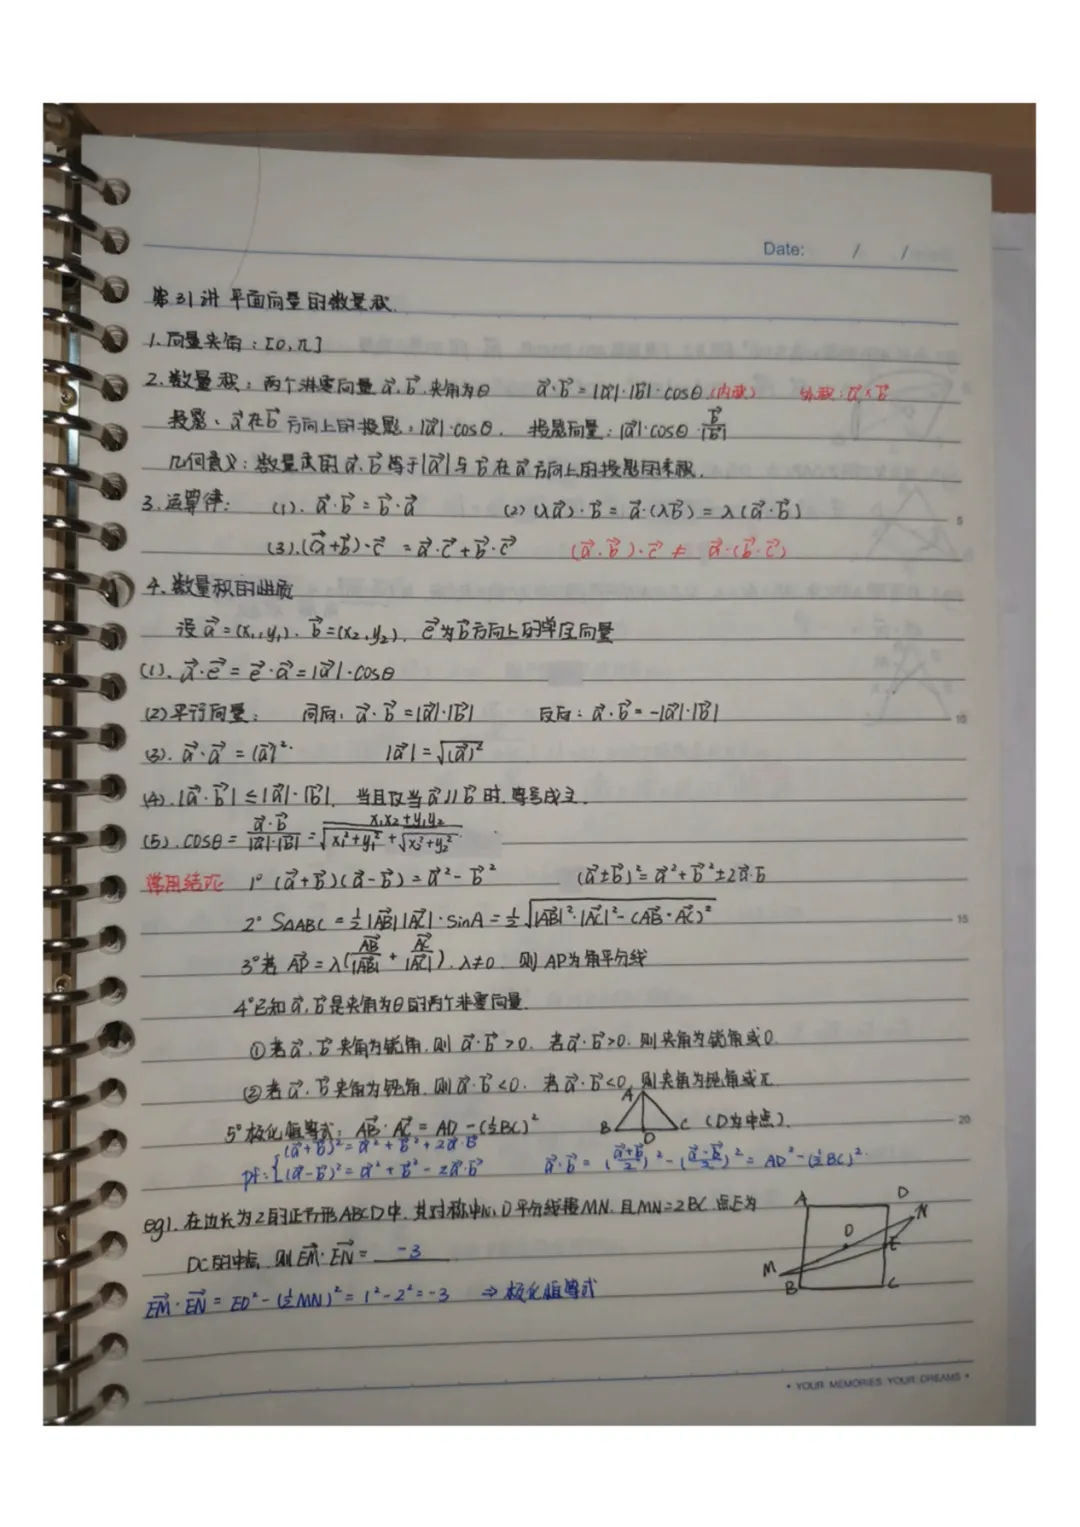 Date: / /
第31讲 平面向量的数量积.
1.向量夹角：[0,π]
2.数量积：两个非零向量a⃗,b⃗,夹角为θ a⃗·b⃗=|a⃗|·|b⃗|·cosθ(内积) 外积：a⃗×b⃗
投影、a⃗在b⃗方向上的投影：|a⃗|·cosθ. 投影向量：|a⃗|·cosθ·b⃗/|b⃗|
几何意义：数量积的a⃗.b⃗等于|a⃗|与b⃗在a⃗方向上的投影的乘积.
3.运算律: (1). a⃗·b⃗=b⃗·a⃗ (2) (λa⃗)·b⃗=a⃗·(λb⃗)=λ(a⃗·b⃗)
(3).(a⃗+b⃗)·c⃗=a⃗·c⃗+b⃗·c⃗ (a⃗·b⃗)·c⃗≠a⃗·(b⃗·c⃗)
5
4.数量积的性质
设a⃗=(x₁,y₁).b⃗=(x₂,y₂). e⃗为b⃗方向上的单位向量
(1).a⃗·e⃗=e⃗·a⃗=|a⃗|·cosθ
(2)平行向量: 同向:a⃗·b⃗=|a⃗|·|b⃗| 反向:a⃗·b⃗=-|a⃗|·|b⃗|
10
(3).a⃗·a⃗=|a⃗|². |a⃗|=√(a⃗)²
(4).|a⃗·b⃗|≤|a⃗|·|b⃗|. 当且仅当a⃗//b⃗时.等号成立.
(5).cosθ=a⃗·b⃗/|a⃗|·|b⃗|=x₁x₂+y₁y₂/√x₁²+y₁²+√x₂²+y₂²
常用结论 1°(a⃗+b⃗)(a⃗-b⃗)=a⃗²-b⃗² (a⃗±b⃗)²=a⃗²+b⃗²±2a⃗·b⃗
2° S△ABC=½|AB⃗||AC⃗|·sinA=½√|AB⃗|²·|AC⃗|²-(AB⃗·AC⃗)²
15
3°若AP⃗=λ(AB⃗/|AB⃗|+AC⃗/|AC⃗|).λ≠0. 则AP为角平分线
4°已知a⃗.b⃗是夹角为θ的两个非零向量.
①若a⃗.b⃗夹角为锐角.则a⃗·b⃗>0. 若a⃗·b⃗>0.则夹角为锐角或0.
②若a⃗.b⃗夹角为钝角.则a⃗·b⃗<0. 若a⃗·b⃗<0.则夹角为钝角或π.
5°极化恒等式：AB⃗·AC⃗=AD-(½BC)² A B D C (D为中点).
20
pf:{(a⃗+b⃗)²=a⃗²+b⃗²+2a⃗·b⃗
(a⃗-b⃗)²=a⃗²+b⃗²-2a⃗·b⃗ a⃗·b⃗=(a⃗+b⃗/2)²-(a⃗-b⃗/2)²=AD²-(½BC)².
eg1.在边长为2的正方形ABCD中.其对称中心O平分线段MN.且MN=2BC.点E为
DC的中点.则EM⃗·EN⃗=-3
EM⃗·EN⃗=EO²-(½MN)²=1²-2²=-3 ⇒极化恒等式
A D N O E M B C
• YOUR MEMORIES YOUR DREAMS •